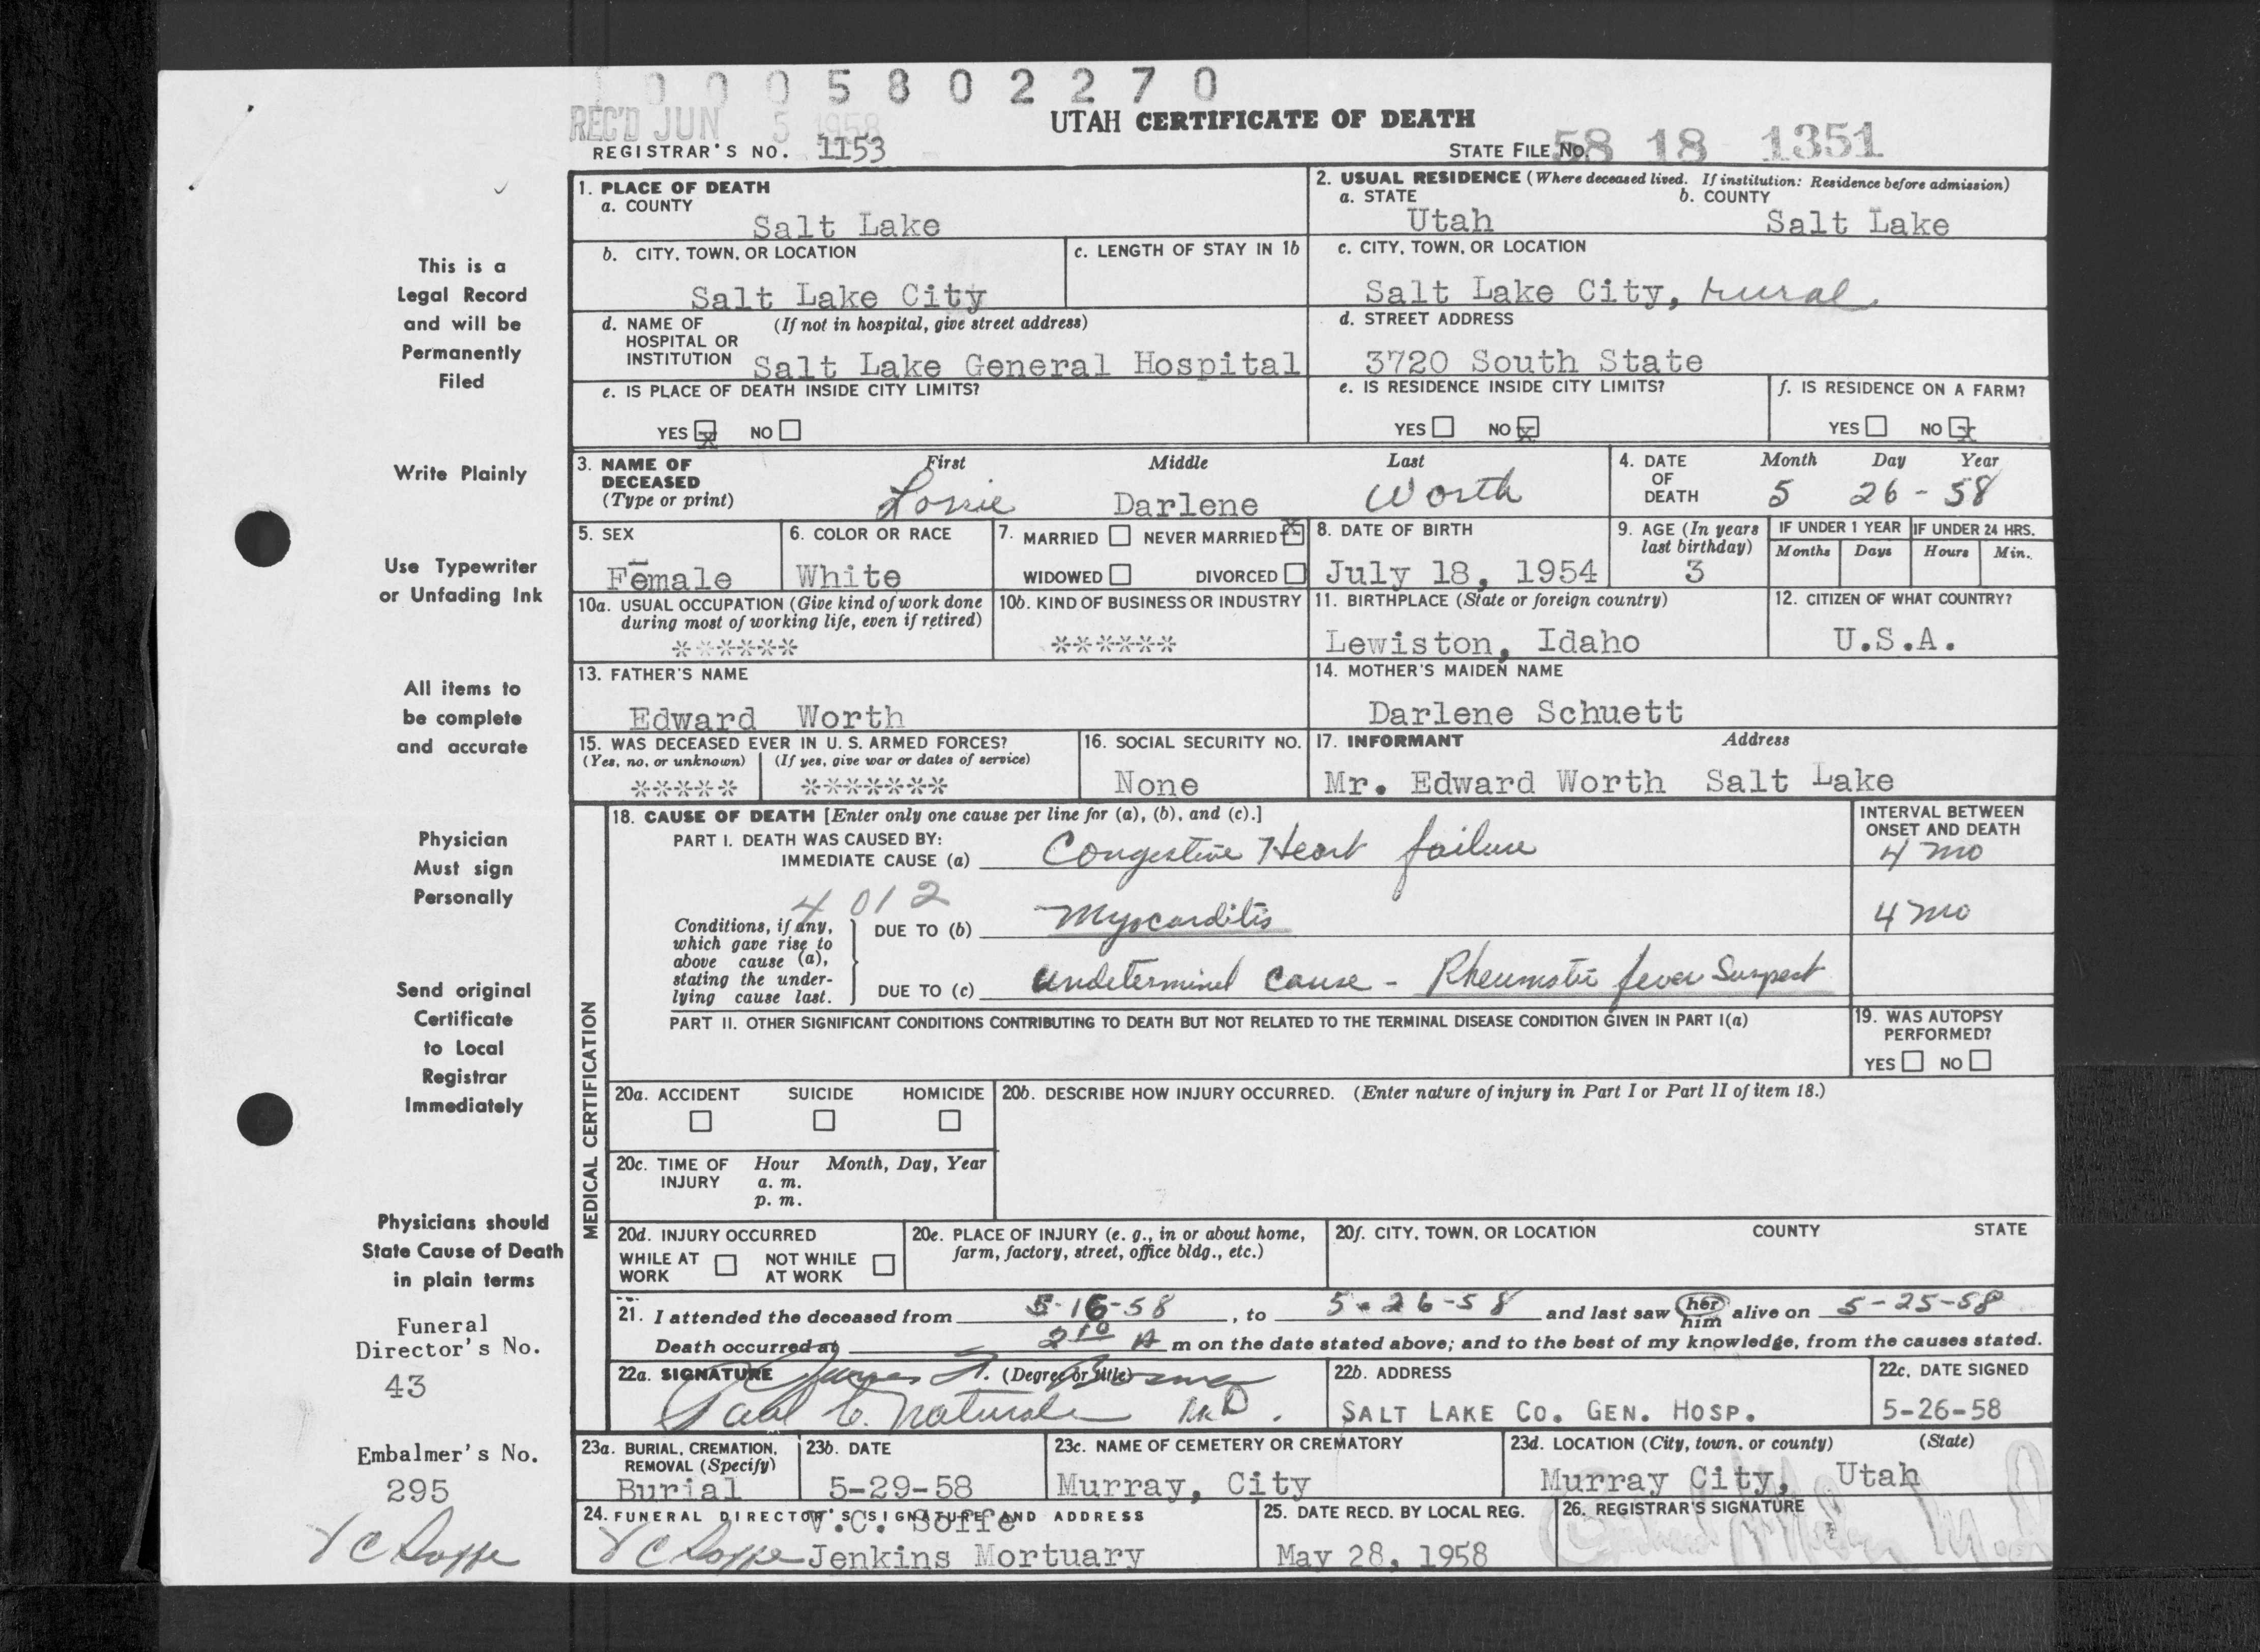 0 0 0 5 8 0 2 2 7 0
REC'D JUN 5 1958
UTAH CERTIFICATE OF DEATH
REGISTRAR'S NO. 1153
STATE FILE NO. 58 18 1351
This is a
Legal Record
and will be
Permanently
Filed
Write Plainly
Use Typewriter
or Unfading Ink
All items to
be complete
and accurate
Physician
Must sign
Personally
Send original
Certificate
to Local
Registrar
Immediately
Physicians should
State Cause of Death
in plain terms
Funeral
Director's No.
43
Embalmer's No.
295
V C Soffe
1. PLACE OF DEATH
a. COUNTY
Salt Lake
2. USUAL RESIDENCE (Where deceased lived. If institution: Residence before admission)
a. STATE b. COUNTY
Utah Salt Lake
b. CITY, TOWN, OR LOCATION
Salt Lake City
c. LENGTH OF STAY IN 1b
c. CITY, TOWN, OR LOCATION
Salt Lake City, rural
d. NAME OF (If not in hospital, give street address)
HOSPITAL OR
INSTITUTION Salt Lake General Hospital
d. STREET ADDRESS
3720 South State
e. IS PLACE OF DEATH INSIDE CITY LIMITS?
YES x NO
e. IS RESIDENCE INSIDE CITY LIMITS?
YES NO x
f. IS RESIDENCE ON A FARM?
YES NO x
3. NAME OF DECEASED (Type or print)
First Middle Last
Lorrie Darlene Worth
4. DATE OF DEATH
Month Day Year
5 26 - 58
5. SEX
Female
6. COLOR OR RACE
White
7. MARRIED NEVER MARRIED x
WIDOWED DIVORCED
8. DATE OF BIRTH
July 18, 1954
9. AGE (In years last birthday)
3
IF UNDER 1 YEAR IF UNDER 24 HRS.
Months Days Hours Min.
10a. USUAL OCCUPATION (Give kind of work done
during most of working life, even if retired)
******
10b. KIND OF BUSINESS OR INDUSTRY
******
11. BIRTHPLACE (State or foreign country)
Lewiston, Idaho
12. CITIZEN OF WHAT COUNTRY?
U.S.A.
13. FATHER'S NAME
Edward Worth
14. MOTHER'S MAIDEN NAME
Darlene Schuett
15. WAS DECEASED EVER IN U. S. ARMED FORCES?
(Yes, no, or unknown) (If yes, give war or dates of service)
***** *******
16. SOCIAL SECURITY NO.
None
17. INFORMANT Address
Mr. Edward Worth Salt Lake
MEDICAL CERTIFICATION
18. CAUSE OF DEATH [Enter only one cause per line for (a), (b), and (c).]
INTERVAL BETWEEN
ONSET AND DEATH
PART I. DEATH WAS CAUSED BY:
IMMEDIATE CAUSE (a) Congestive Heart failure 4 mo
4012
Conditions, if any,
which gave rise to
above cause (a),
stating the under-
lying cause last.
DUE TO (b) Myocarditis 4 mo
DUE TO (c) undetermined cause - Rheumatic fever Suspect
PART II. OTHER SIGNIFICANT CONDITIONS CONTRIBUTING TO DEATH BUT NOT RELATED TO THE TERMINAL DISEASE CONDITION GIVEN IN PART I(a)
19. WAS AUTOPSY
PERFORMED?
YES NO
20a. ACCIDENT SUICIDE HOMICIDE
20b. DESCRIBE HOW INJURY OCCURRED. (Enter nature of injury in Part I or Part II of item 18.)
20c. TIME OF INJURY Hour Month, Day, Year
a. m.
p. m.
20d. INJURY OCCURRED
WHILE AT WORK NOT WHILE AT WORK
20e. PLACE OF INJURY (e. g., in or about home,
farm, factory, street, office bldg., etc.)
20f. CITY, TOWN, OR LOCATION COUNTY STATE
21. I attended the deceased from 5-16-58, to 5-26-58 and last saw her him alive on 5-25-58
Death occurred at 2 10 A m on the date stated above; and to the best of my knowledge, from the causes stated.
22a. SIGNATURE (Degree or title)
James
Paul C. M.D.
22b. ADDRESS
SALT LAKE CO. GEN. HOSP.
22c. DATE SIGNED
5-26-58
23a. BURIAL, CREMATION,
REMOVAL (Specify)
Burial
23b. DATE
5-29-58
23c. NAME OF CEMETERY OR CREMATORY
Murray, City
23d. LOCATION (City, town, or county) (State)
Murray City, Utah
24. FUNERAL DIRECTOR'S SIGNATURE AND ADDRESS
V.C. Soffe
V C Soffe Jenkins Mortuary
25. DATE RECD. BY LOCAL REG.
May 28, 1958
26. REGISTRAR'S SIGNATURE